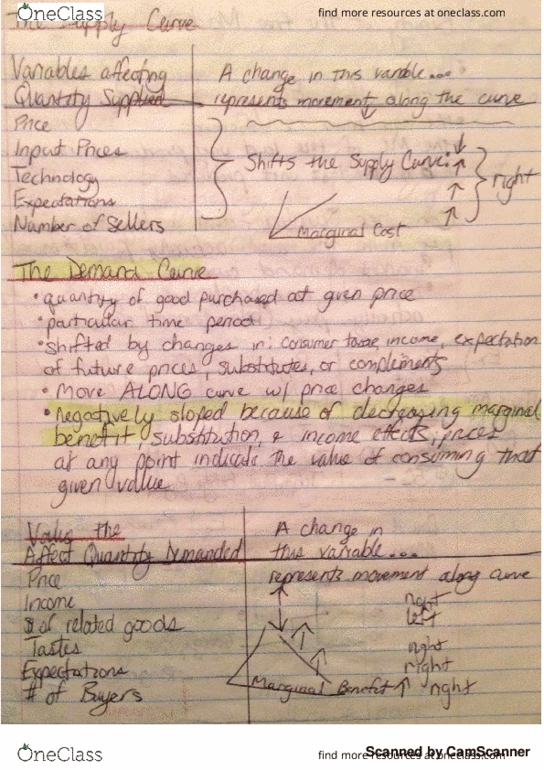 OneClass
find more resources at oneclass.com
The Supply Curve
Variables affecting
Quantity Supplied
A change in this variable...
Price
represents movement along the curve
Input Prices
Technology
Expectations
Number of Sellers
Shifts the Supply Curve:
right
Marginal Cost
The Demand Curve
• quantity of good purchased at given price
• particular time period
• shifted by changes in: consumer taste, income, expectation
of future prices, substitutes, or complements
• Move ALONG curve w/ price changes
• negatively sloped because of decreasing marginal
benefit, substitution, & income effects; prices
at any point indicate the value of consuming that
given value
the
Affect Quantity Demanded
A change in
this variable...
Price
represents movement along curve
Income
right
left
$ of related goods
Tastes
right
Expectations
right
# of Buyers
right
Marginal Benefit
OneClass
find more resources at oneclass.com
Scanned by CamScanner